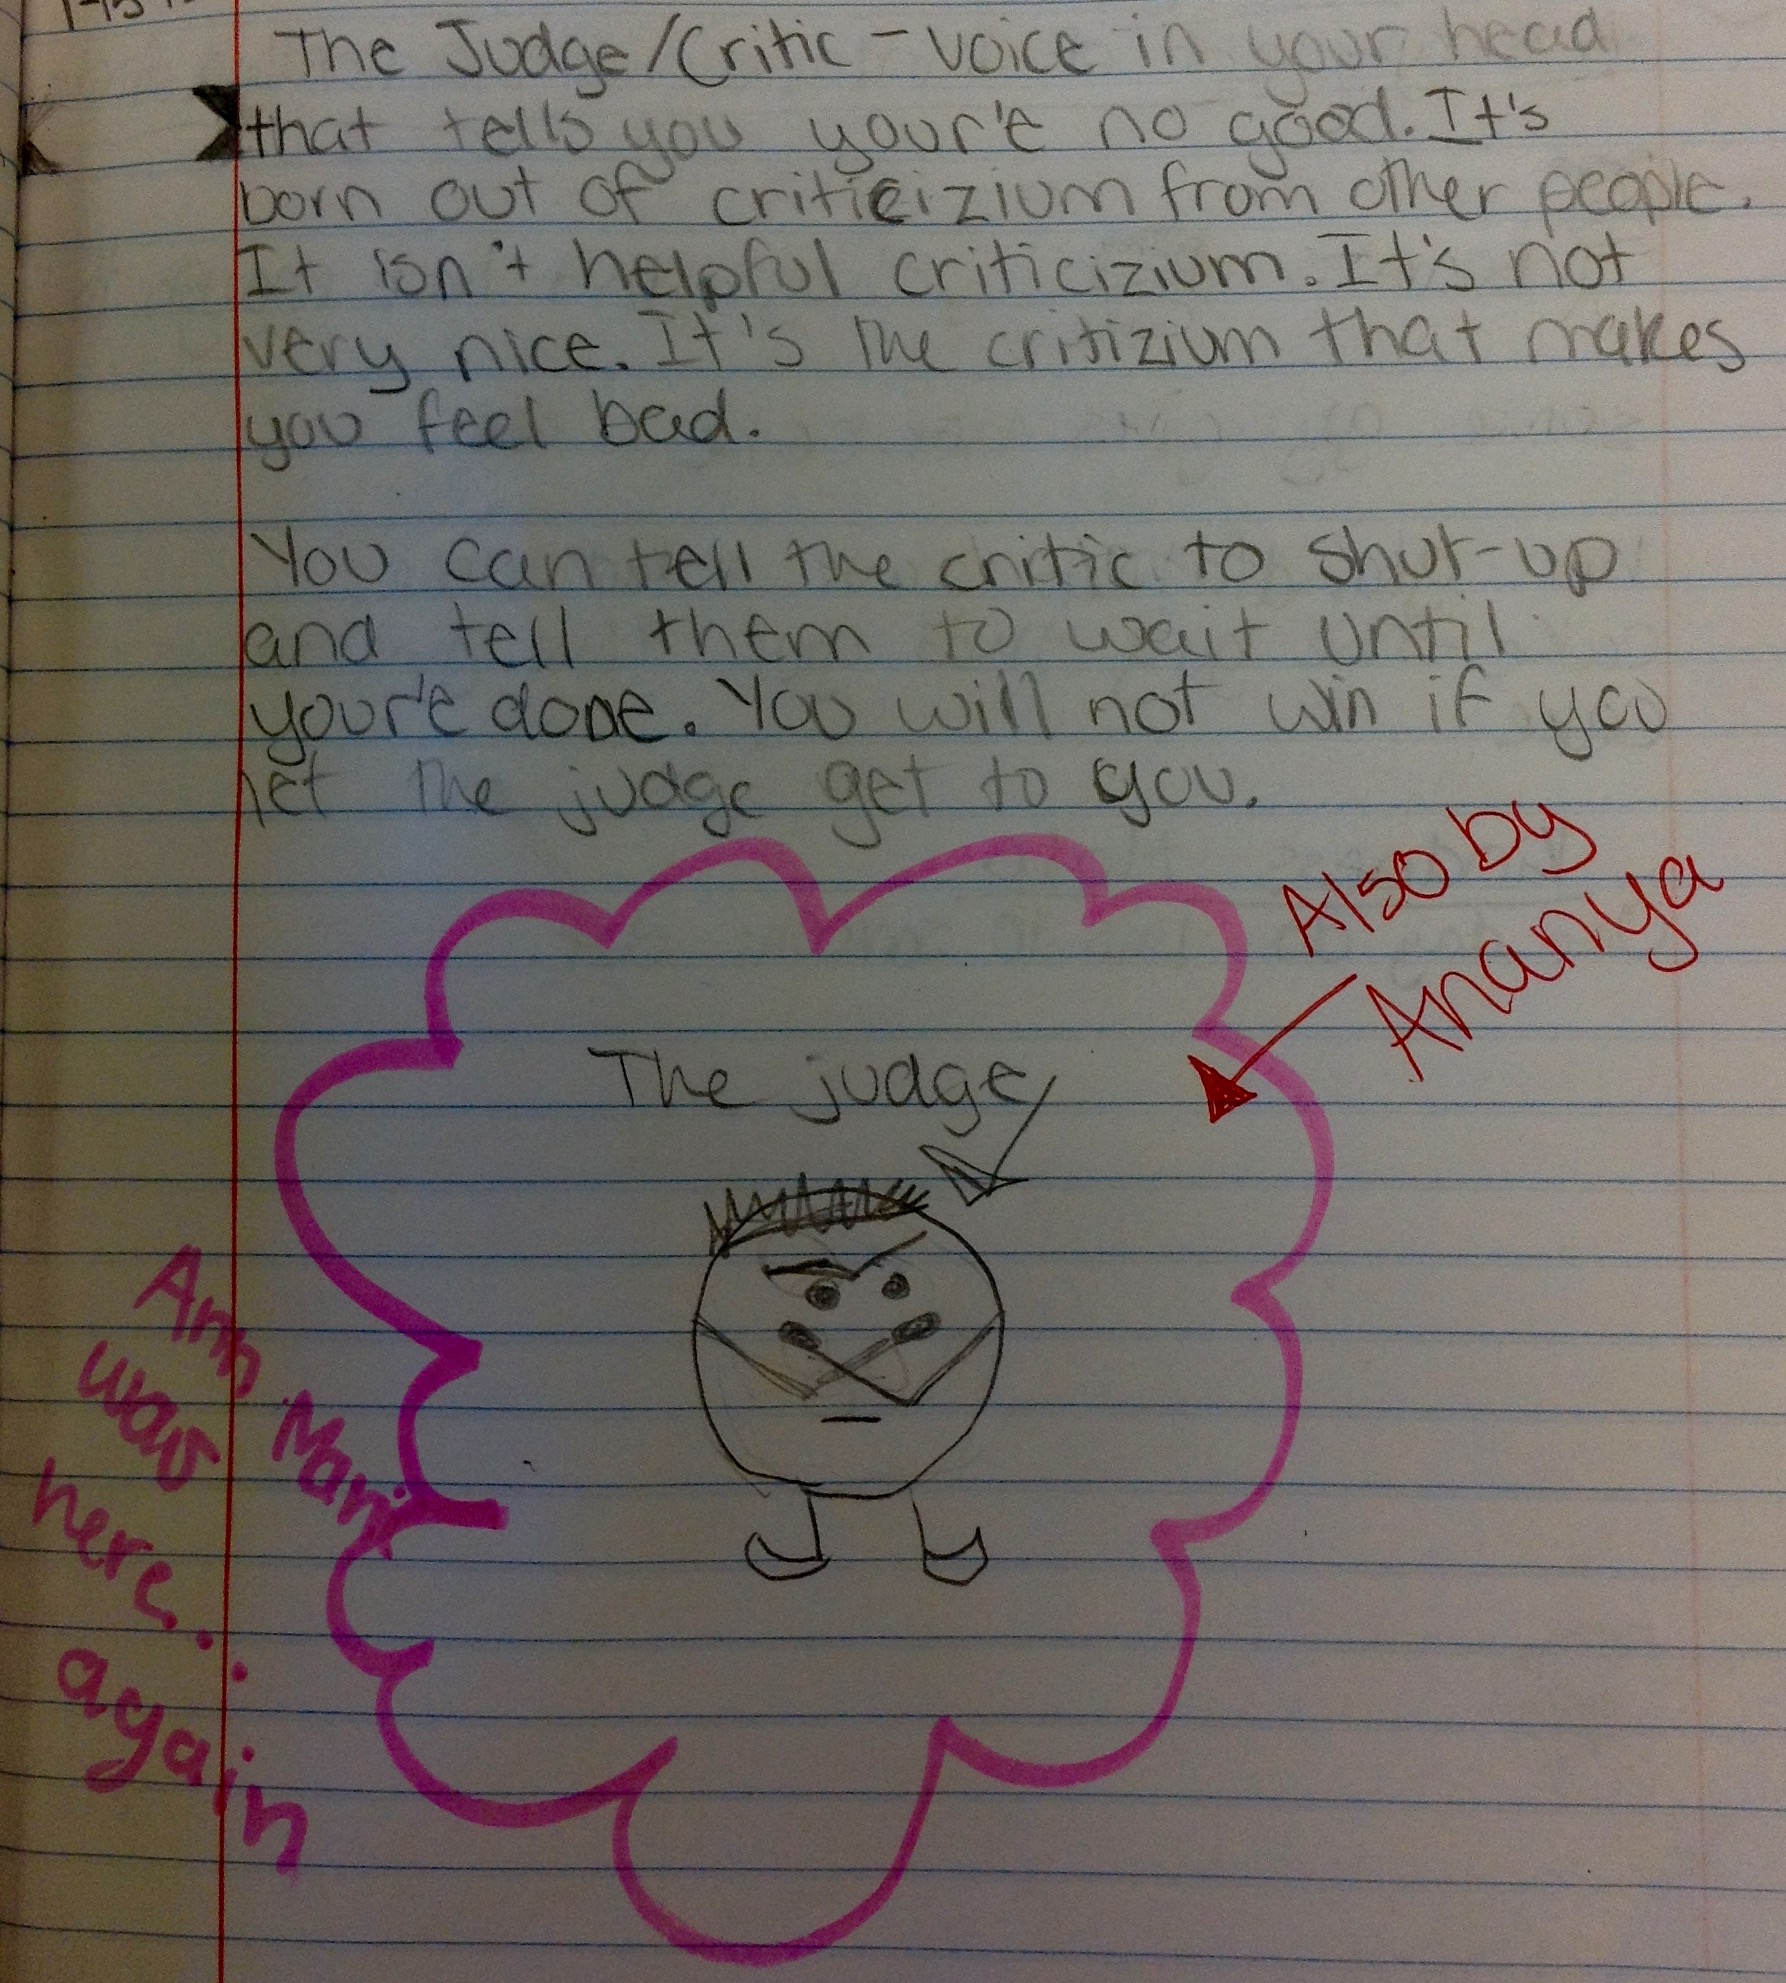 The Judge/Critic - voice in your head
that tells you your'e no good. It's
born out of criticizium from other people.
It isn't helpful criticizium. It's not
very nice. It's the critizium that makes
you feel bad.
You can tell the critic to shut-up
and tell them to wait until
your'e done. You will not win if you
let the judge get to you.
Also by
Ananya
The judge
Ann Mari
was
here...
again